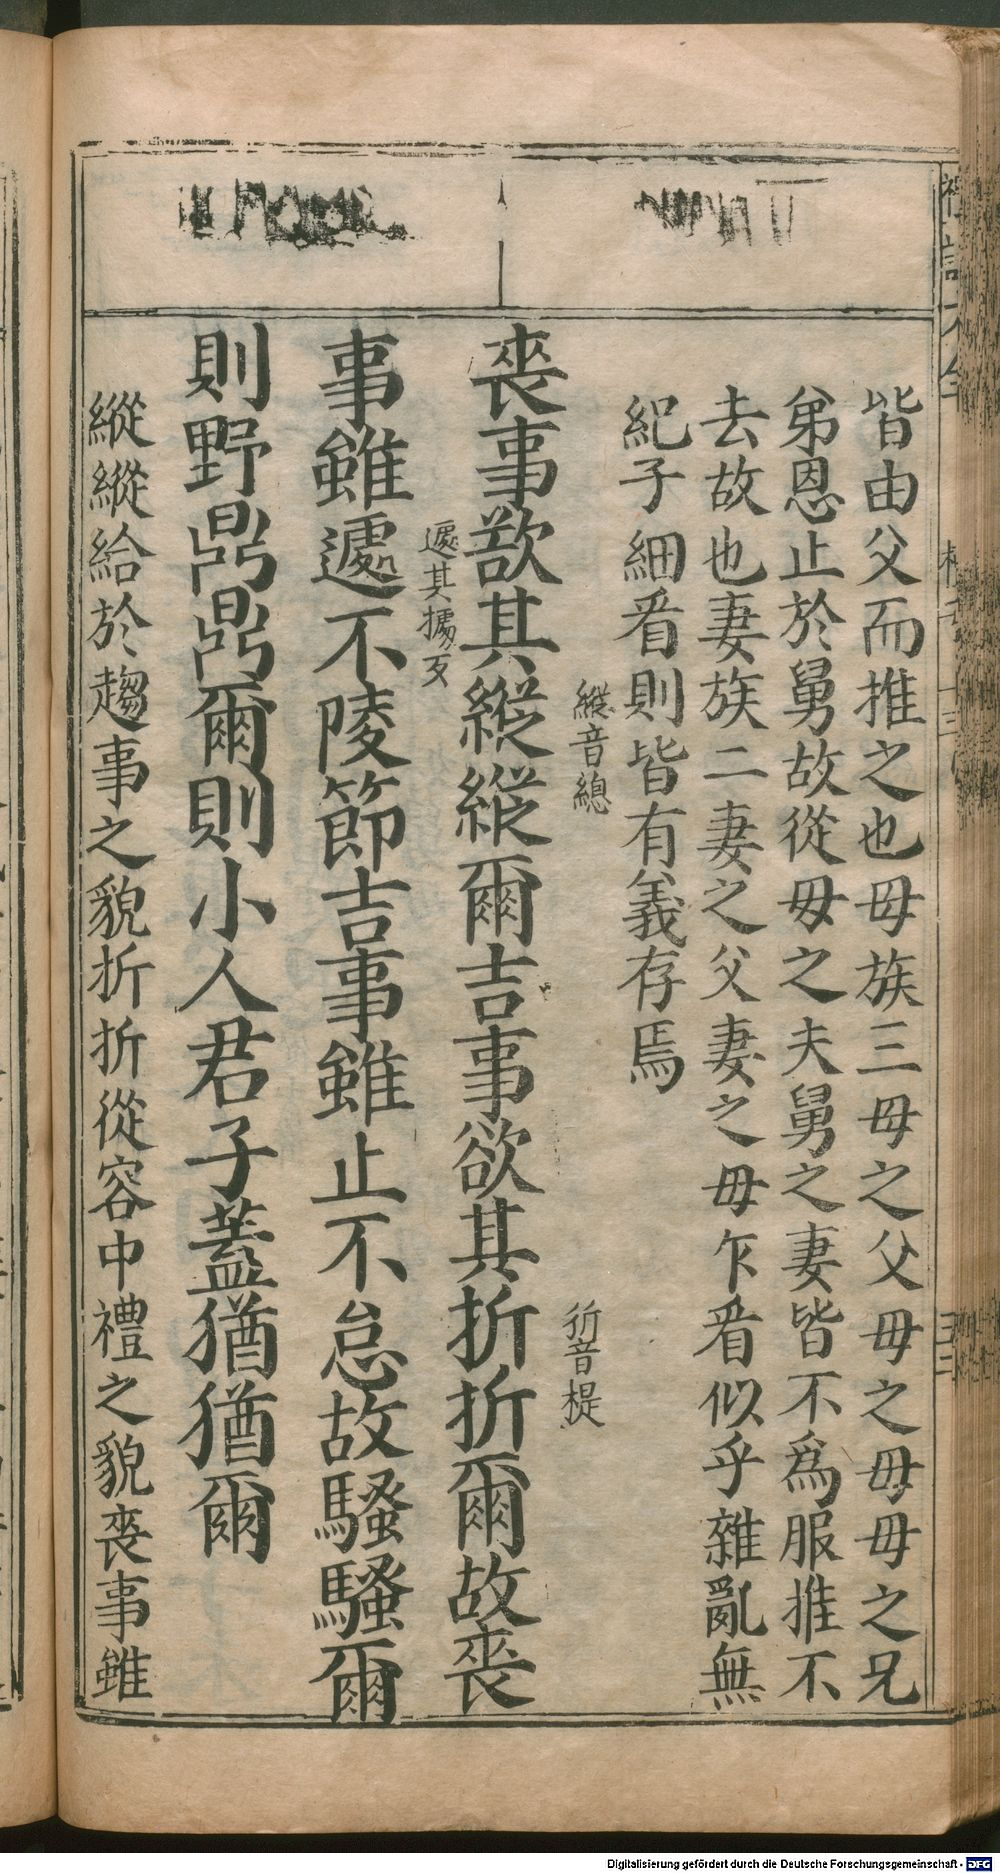 皆由父而推之也母族三母之父母之母母之兄
弟恩止於舅故從母之夫舅之妻皆不為服推不
去故也妻族二妻之父妻之母乍看似乎雜亂無
紀子細看則皆有義存焉
縱音總
折音提
喪事欲其縱縱爾吉事欲其折折爾故喪
遽其據反
事雖遽不陵節吉事雖止不怠故騷騷爾
則野鼎鼎爾則小人君子蓋猶猶爾
縱縱給於趨事之貌折折從容中禮之貌喪事雖
Digitalisierung gefördert durch die Deutsche Forschungsgemeinschaft - DFG